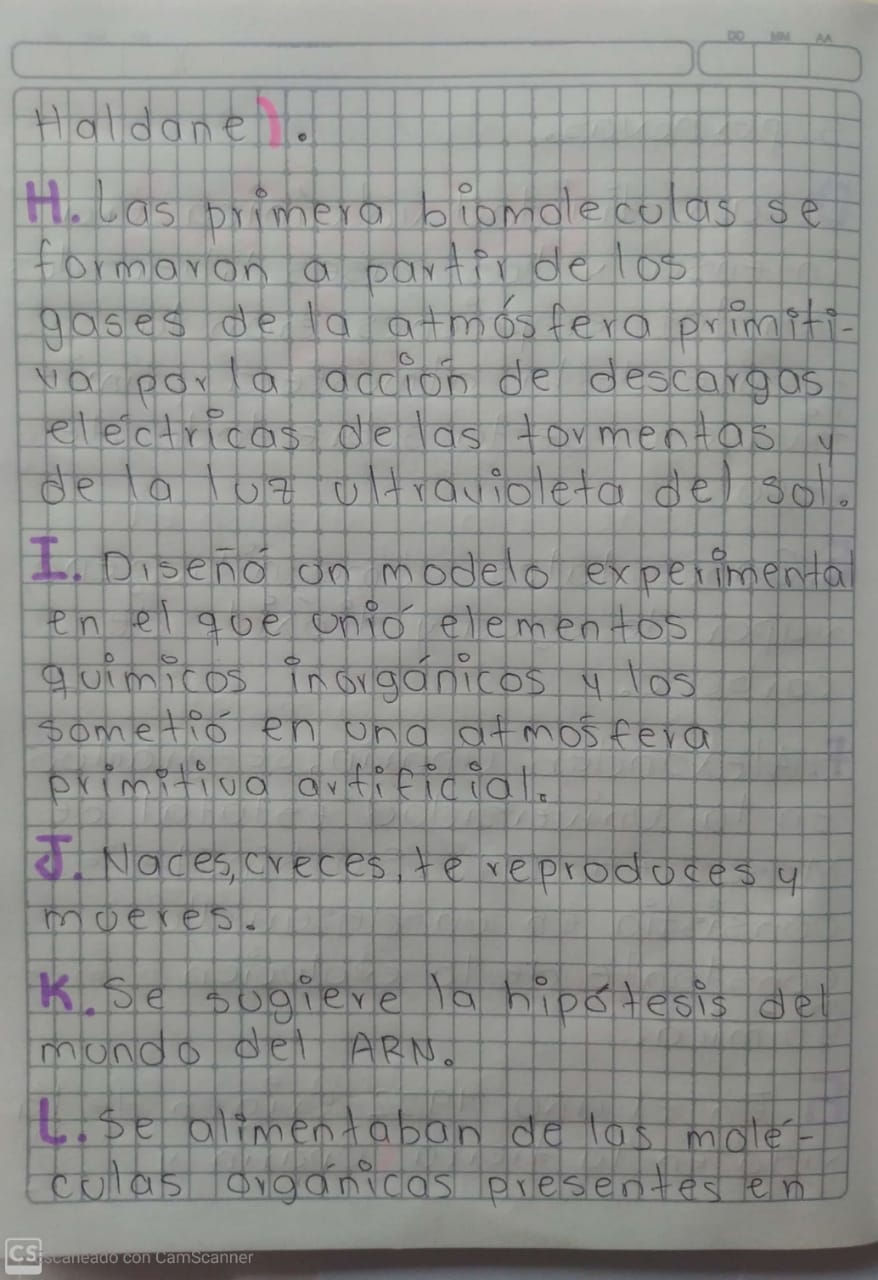 DD MM AA
Haldane).
H. Las primera biomoleculas se
formaron a partir de los
gases de la atmósfera primiti-
va por la acción de descargas
eléctricas de las tormentas y
de la luz ultravioleta del sol.
I. Diseñó un modelo experimental
en el que unió elementos
químicos inorgánicos y los
sometió en una atmósfera
primitiva artificial.
J. Naces, creces, te reproduces y
mueres.
K. Se sugiere la hipótesis del
mundo del ARN.
L. Se alimentaban de las molé-
culas orgánicas presentes en
CS Escaneado con CamScanner